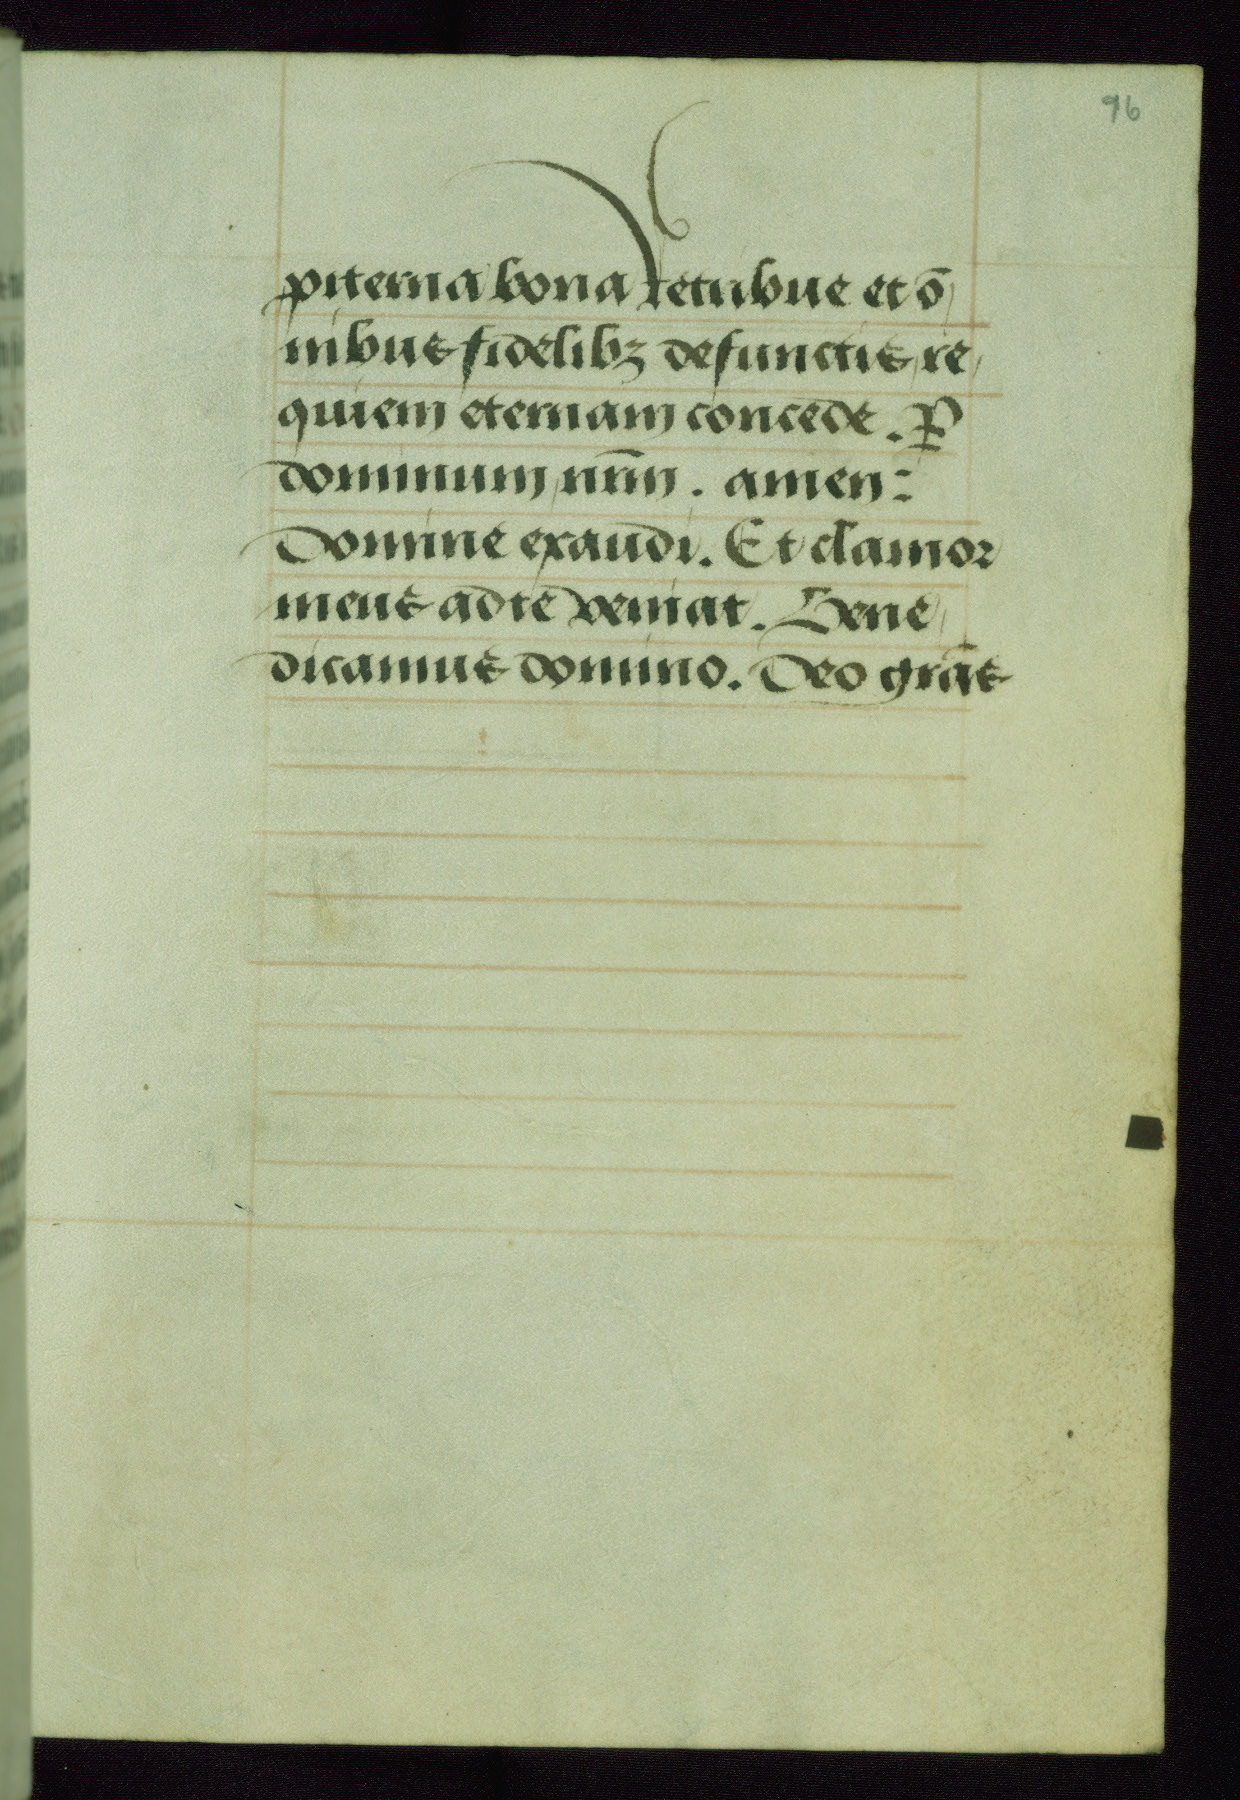 96
piterna bona retribue et ō
nibus fidelibꝫ defunctis re
quiem eternam concede. P̲
dominum nr̄m. amen:
Domine exaudi. Et clamor
meus ad te veniat. Bene
dicamus domino. Deo grās